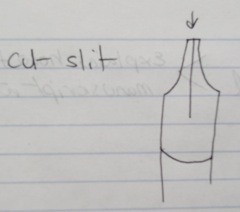 cut slit